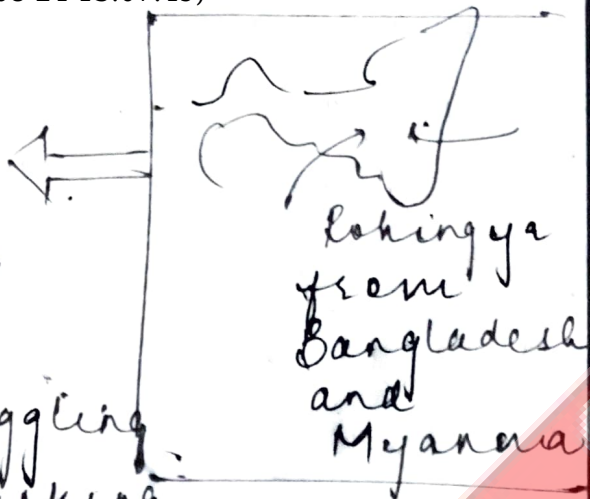 Rohingya
from
Bangladesh
and
Myanma
ggling